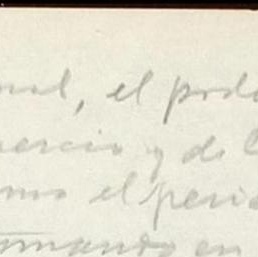 nal, el pode
mercio y de l
omo el perio
tomando en